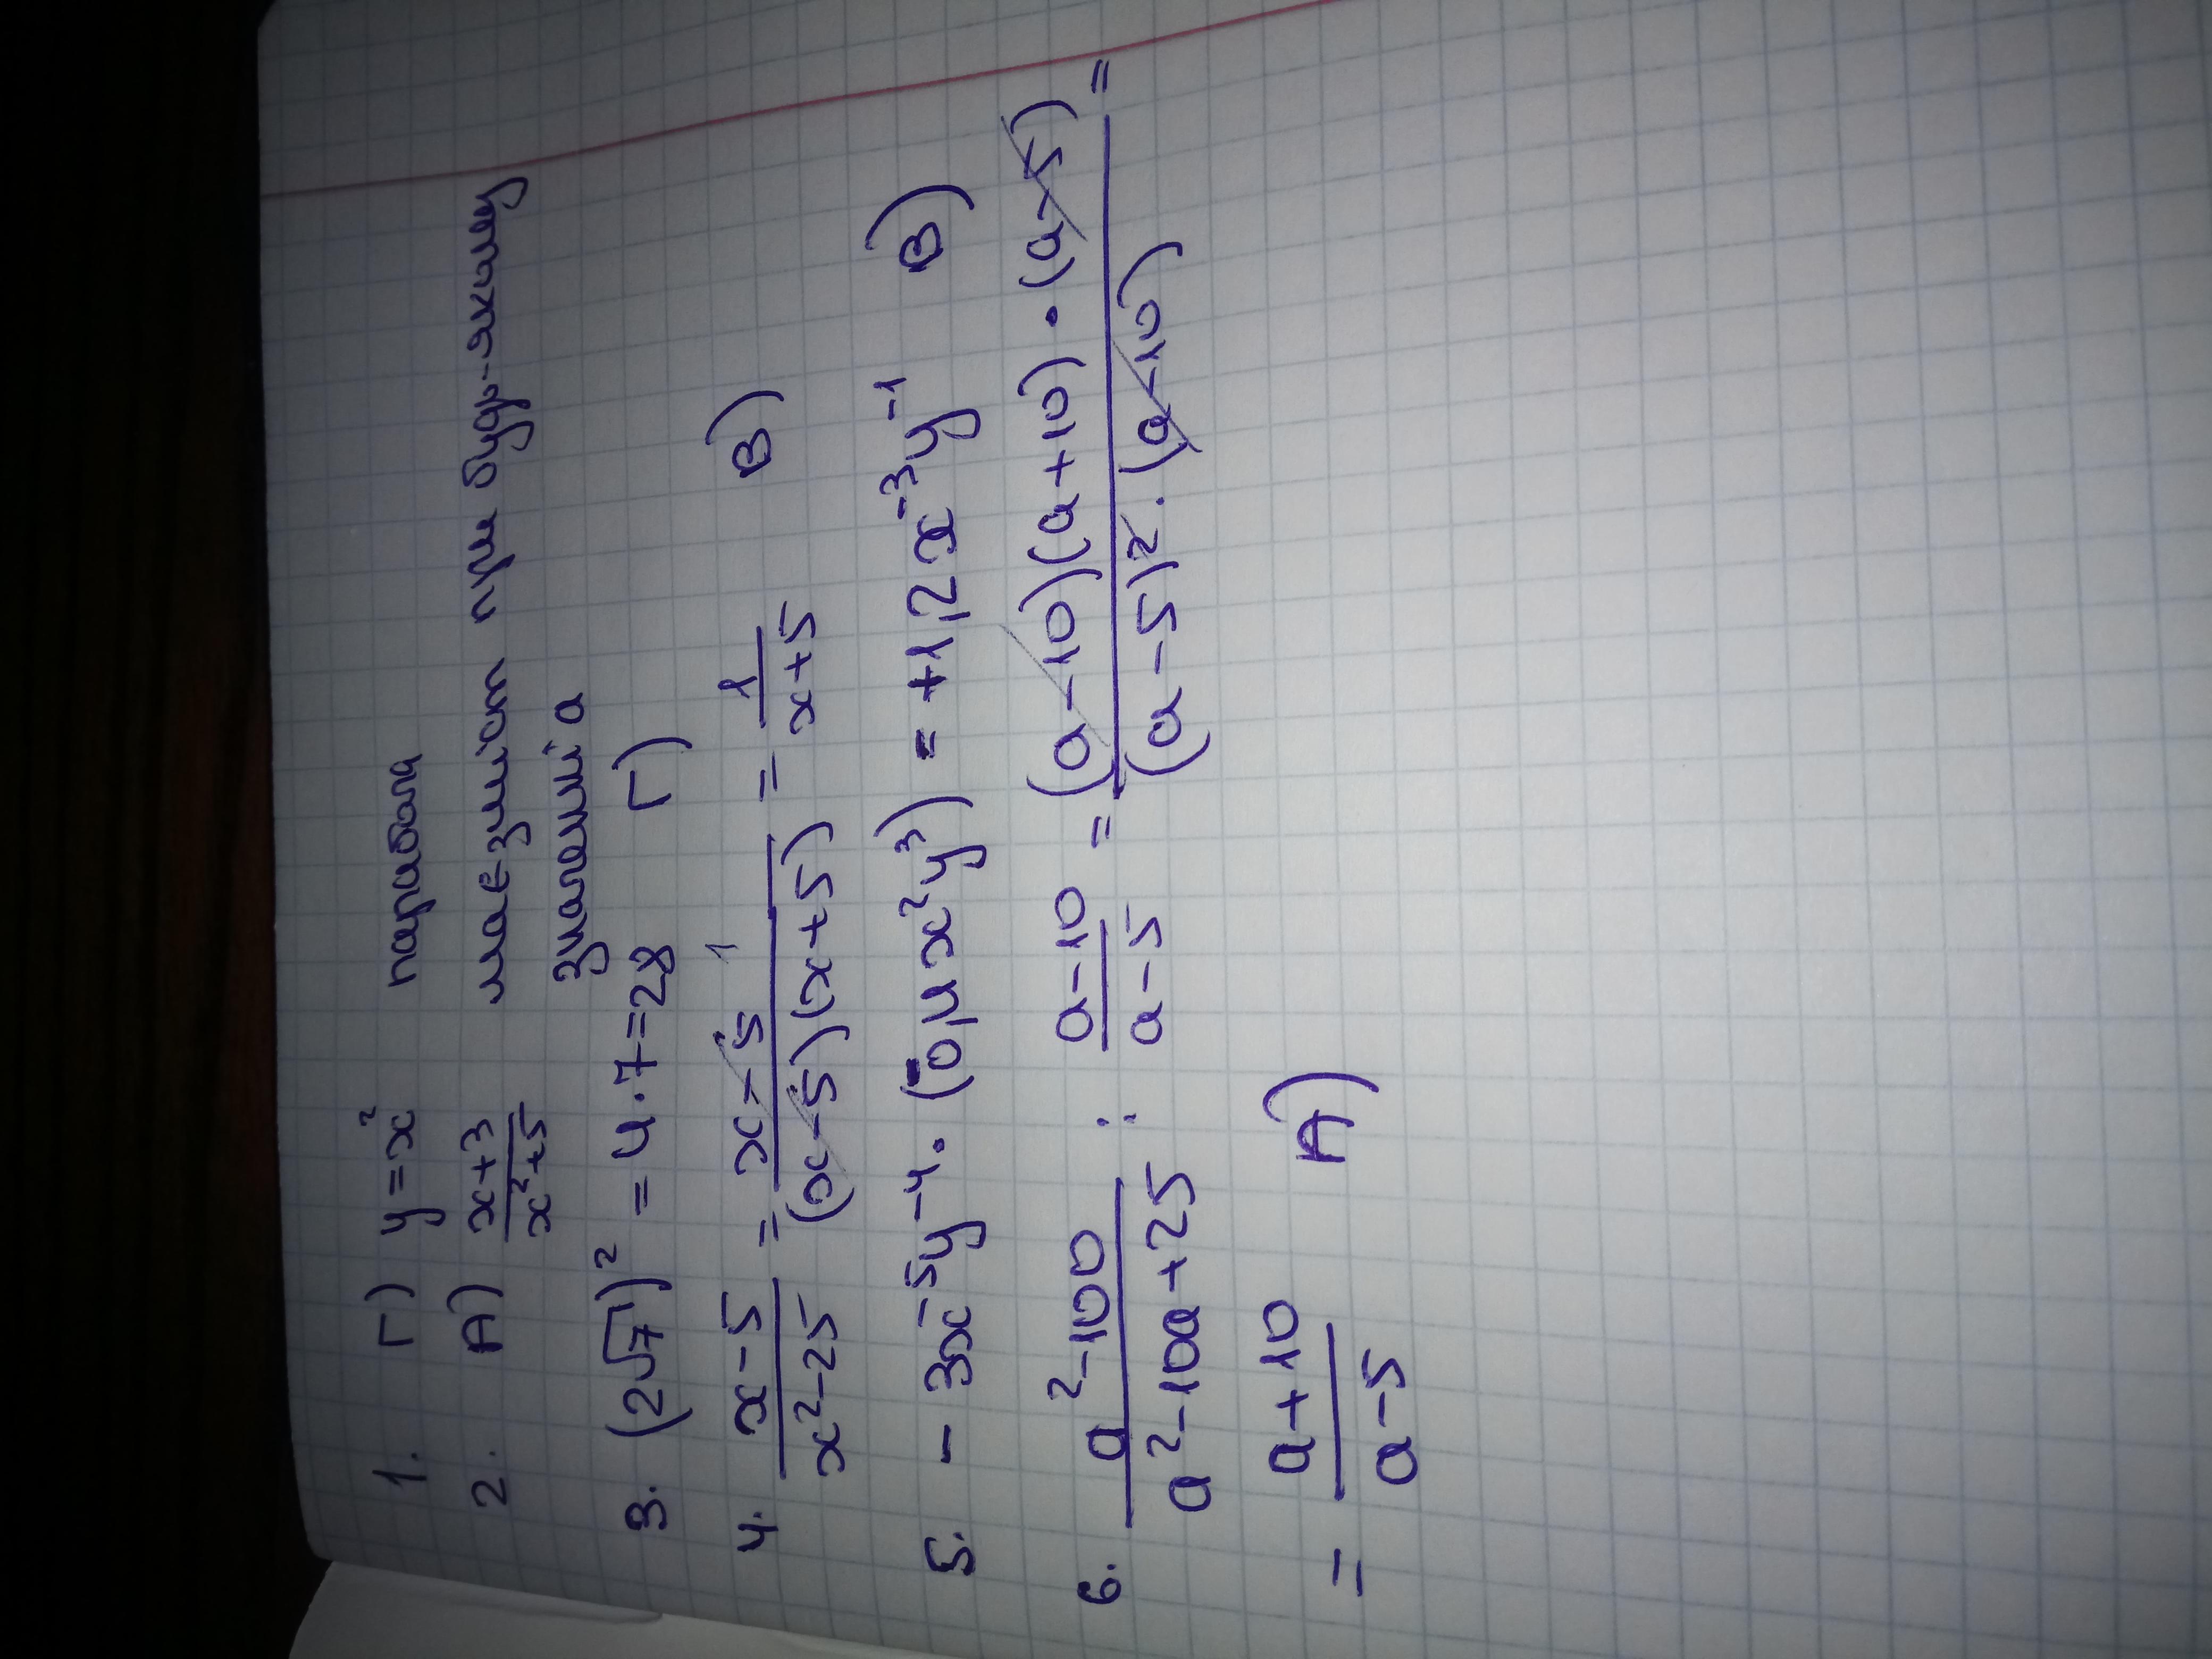 1. Г) y=x² парабола
2. А) (x+3)/(x²+5) має зміст при будь-якому
значенні а
3. (2√7)² = 4·7=28 Г)
4. (x-5)/(x²-25) = (x-5)/((x-5)(x+5)) = 1/(x+5) В)
5. -3x⁻⁵y⁻⁴·(-0,4x²y³) = +1,2x⁻³y⁻¹ В)
6. (a²-100)/(a²-10a+25) : (a-10)/(a-5) = ((a-10)(a+10)·(a-5))/((a-5)²·(a-10)) =
= (a+10)/(a-5) А)